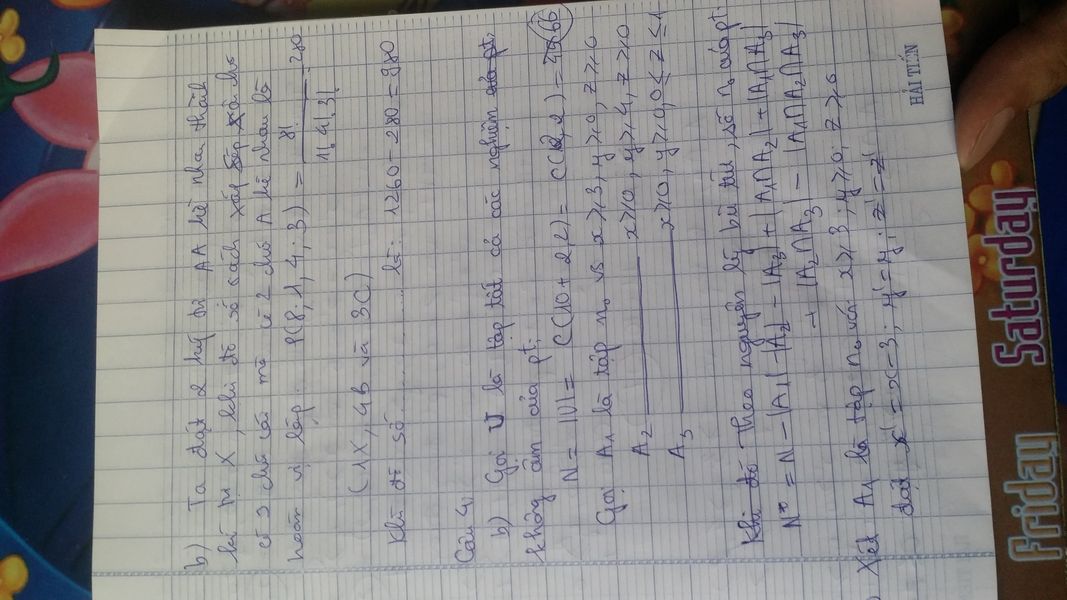 b) Ta đặt 2 ký tự AA kề nhau thành
kí tự X, khi đó số cách xếp xâu cho
có 9 chữ cái mà có 2 chữ A kề nhau là
hoán vị lặp: P(8; 1, 4; 3) = 8! / 1!.4!.3! = 280
(1X, 4B và 3C)
Khi đó số .......... là: 1260 - 280 = 980
Câu 4
b) Gọi U là tập tất cả các nghiệm
không âm của pt:
N = |U| = C(10 + 2, 2) = C(12, 2) = 66
Gọi A1 là tập n0 vs x ≥ 3, y ≥ 0, z ≥ 0
A2 ——— x ≥ 0, y ≥ 4, z ≥ 0
A3 ——— x ≥ 0, y ≥ 0, 0 ≤ z ≤ 1
Khi đó Theo nguyên lý bù trừ, số n0 của pt:
N* = N - |A1| - |A2| - |A3| + |A1∩A2| + |A1∩A3|
+ |A2∩A3| - |A1∩A2∩A3|
Xét A1 là tập n0 với x ≥ 3; y ≥ 0; z ≥ 0
đặt x' = x - 3; y' = y; z' = z
HẢI TIẾN
Friday
Saturday